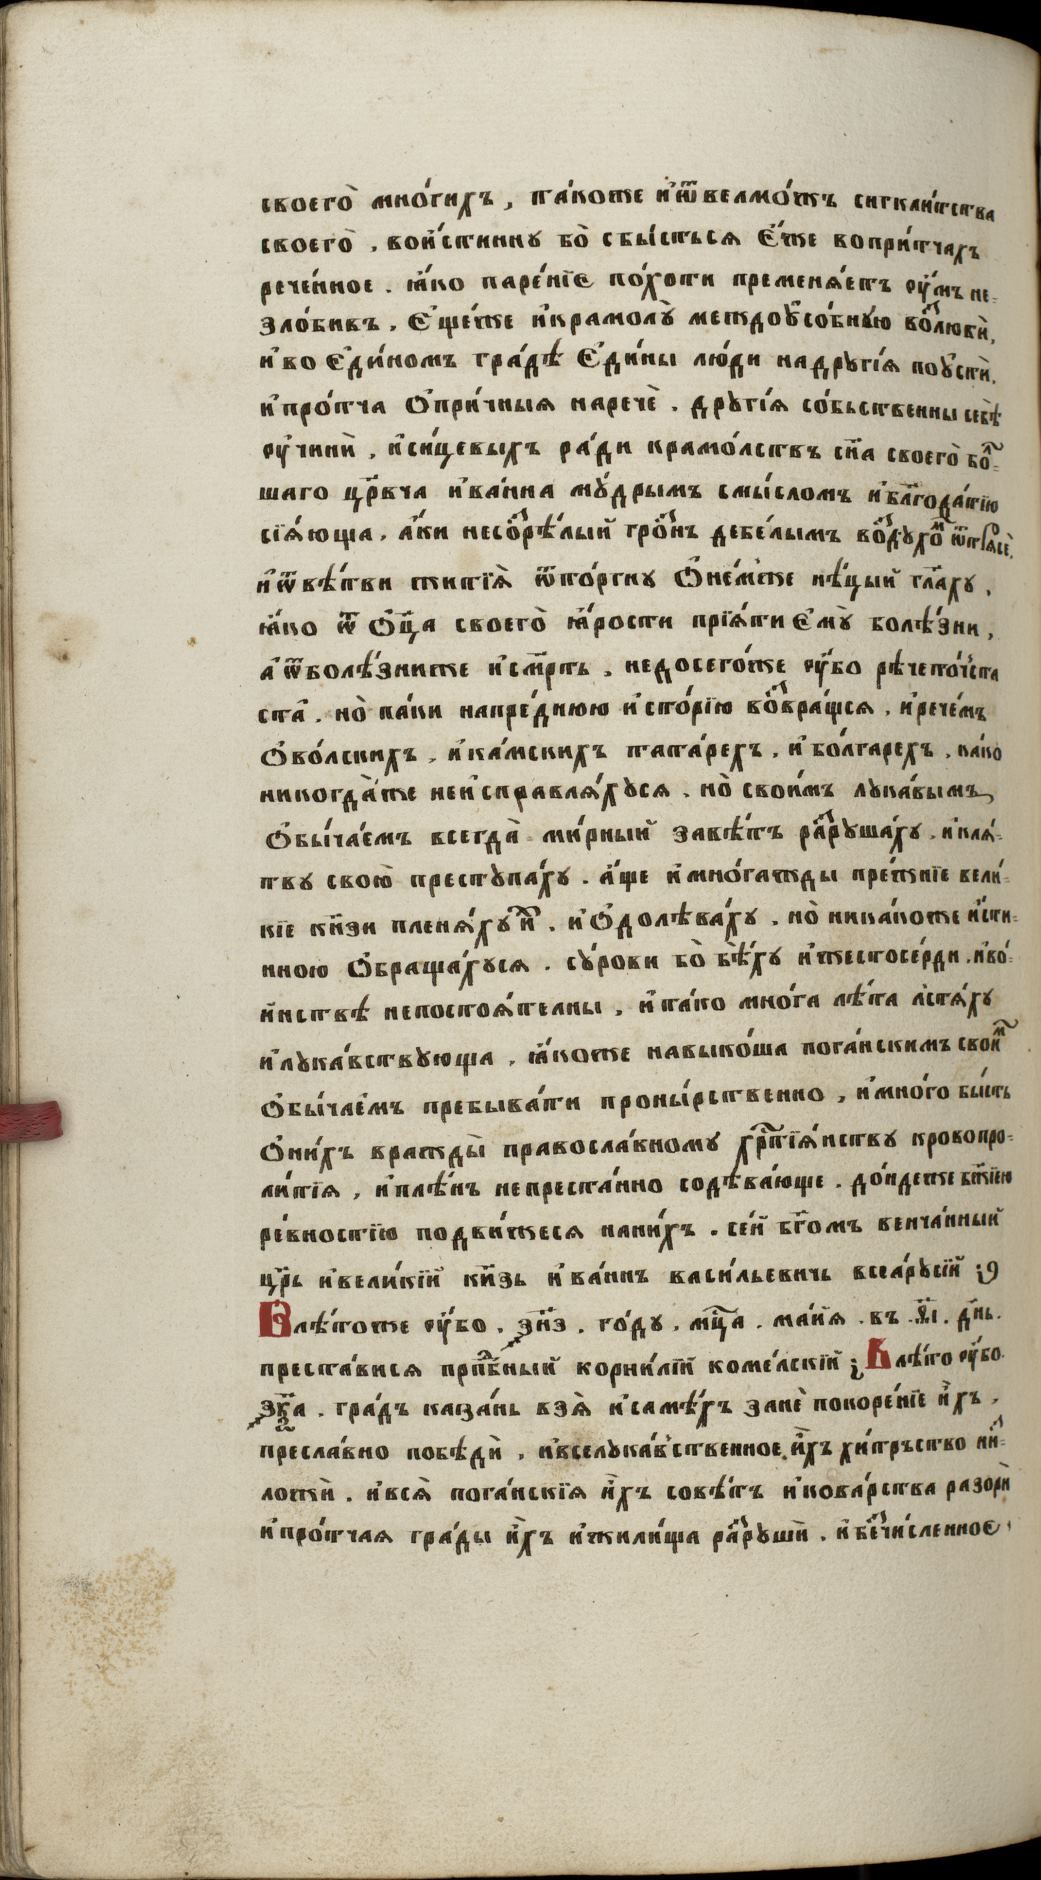 своего̀ мно́гихъ, та́коже и҆ ѿ велмо́жъ сигкли́тства
своего̀. вои́стинну бо̀ сбы́сться є҆́же вопритчахъ
рече́нное. ꙗ҆́ко паре́нїе по́хоти пременѧ́етъ ᲂу҆́мъ не=
зло́бивъ. є҆ще́же и҆ крамолꙋ̀ междоусо́бную возлюбѝ,
и҆ во є҆ди́номъ гра́дѣ є҆ди́ны лю́ди на дрꙋгі́ѧ поустѝ.
и҆ про́тча ѻ҆при́чныѧ наречѐ. дрꙋгі́ѧ со́бьственны себѣ̀
ᲂу҆чинѝ, и҆ си́цевыхъ ра́ди крамо́лствъ сн҃а своего̀ бо́л=
шаго цр҃вча и҆ва́нна мꙋ́дрымъ смы́сломъ и҆ бл҃года́тїю
сїѧ́юща, а҆́ки несозрѣ́лый гро́знъ дебе́лымъ во́здꙋхомъ ѿтрѧсѐ,
и҆ ѿ вѣ́тви житїѧ̀ ѿто́ргнꙋ ѻ҆ не́мже нѣ́цый гл҃ахꙋ,
ꙗ҆́ко ѿ ѻ҆ц҃а своего̀ ꙗ҆́рости прїѧ́ти є҆мꙋ̀ болѣ́зни,
а҆ ѿ болѣ́зниже и҆ см҃рть. недосего́же ᲂу҆́бо рѣчепо́иста
ста̀. но̀ па́ки напре́днюю и҆сто́рїю возвра́щсѧ. и҆ рече́мъ
ѻ҆ во́лскихъ, и҆ ка́мскихъ тата́рехъ, и҆ болгарехъ, ка́ко
никогда́же неисправлѧ́хꙋсѧ. но̀ свои́мъ лꙋка́вымъ
ѻ҆бы́чаемъ всегда̀ ми́рный завѣ́тъ разрꙋша́хꙋ. и҆ клѧ́=
твꙋ свою̀ престꙋпа́хꙋ. а҆́ще и҆ мно́гажды пре́жнїе вели́=
кїе кн҃зи пленѧ́хꙋ и҆̀хъ. и҆ ѻ҆долѣва́хꙋ. но̀ ника́коже и҆́сти=
нною ѻ҆браща́хꙋсѧ. сꙋ́рови бо̀ бѣ́хꙋ и҆ жестосе́рди. и҆ во́=
йнствѣ непостоѧ́телны, и҆ та́ко мно́га лѣ́та лстѧ́хꙋ
и҆ лꙋка́вствꙋюща, ꙗ҆́коже навыко́ша пога́нскимъ свои́мъ
ѻ҆бы́чаемъ пребыва́ти проны́рственно, и҆ мно́го бы́сть
ѻ҆ ни́хъ вражды̀ правосла́вномꙋ хрⷭ҇тїѧ́нствꙋ кровопро=
ли́тїѧ, и҆ плѣ́нъ непреста́нно содѣва́юще. до́ндеже бж҃їею
ре́вностїю подви́жесѧ нани́хъ. се́й бг҃омъ венча́нный
цр҃ь и҆ вели́кїй кн҃зь и҆ва́ннъ васи́льевичь всеа́рꙋсїй ;
В лѣ́тоже ᲂу҆́бо. ҂зн҃з. го́дꙋ. мц҃а. ма́иѧ. въ. д҃і. дн҃ь.
преста́висѧ прпⷣбный корни́лїй коме́лскїй ; В лѣ́то ᲂу҆́бо
҂зк҃а. гра́дъ каза́нь взѧ̀ и҆ саме́хъ занѐ покоре́нїе и҆́хъ,
пресла́вно побѣдѝ, и҆ вселꙋка́вственное и҆́хъ хи́тръство ни́з=
ложѝ. и҆ всѧ̀ пога́нскїѧ и҆́хъ совѣ́тъ и҆ кова́рства разорѝ
и҆ про́тчаѧ гра́ды и҆́хъ и҆ жили́ща разрꙋшѝ. и҆ безчи́сленное